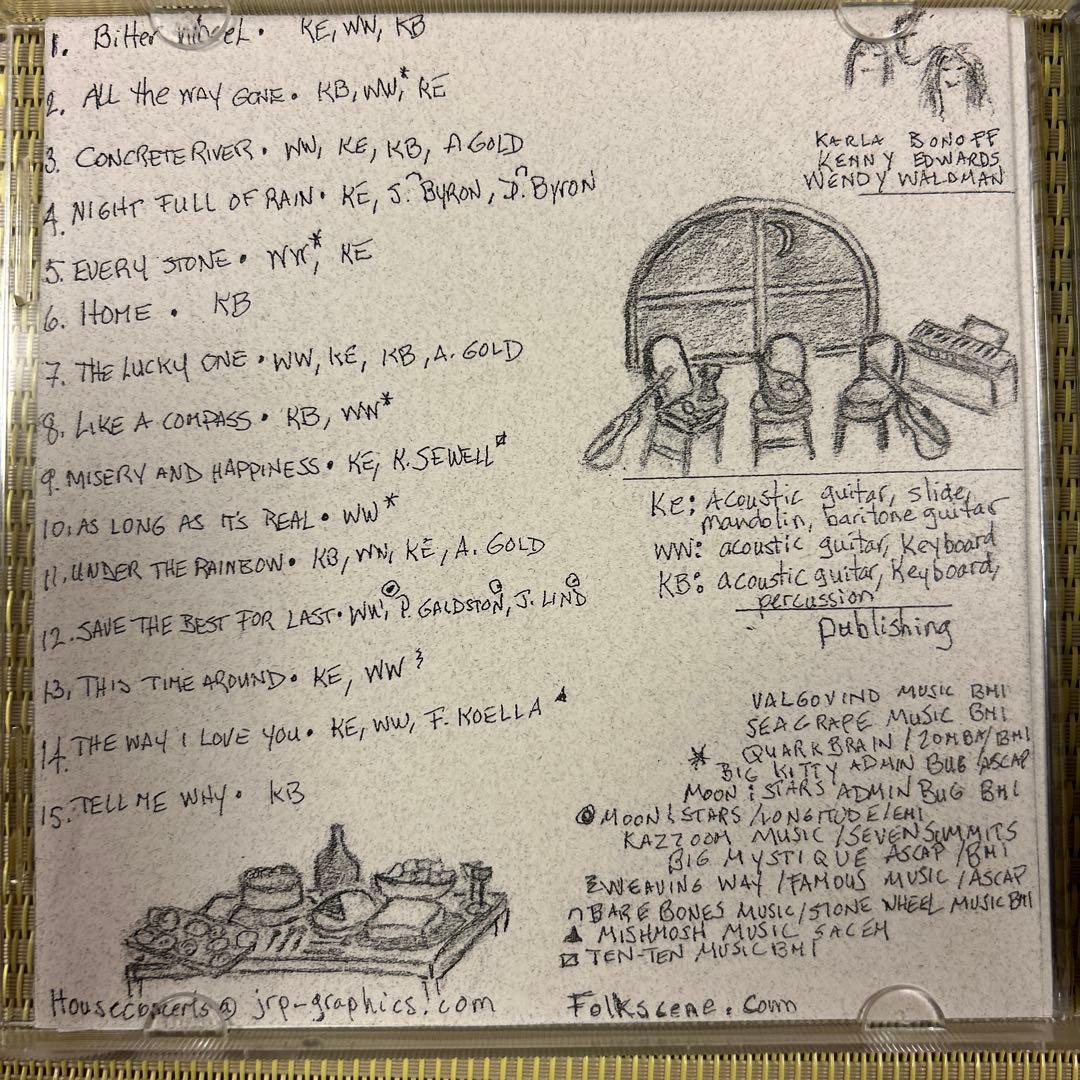 1. Bitter wheel. KE, WW, KB
2. ALL the WAY GONE. KB, WW,* KE
3. CONCRETE RIVER. WW, KE, KB, A GOLD
4. NIGHT FULL OF RAIN. KE, J. ∩ BYRON, D. ∩ Byron
5. EVERY STONE. WW*, KE
6. HOME. KB
7. THE LUCKY ONE. WW, KE, KB, A. GOLD
8. LIKE A COMPASS. KB, WW*
9. MISERY AND HAPPINESS. KE, K. SEWELL
10. AS LONG AS IT'S REAL. WW*
11. UNDER THE RAINBOW. KB, WW, KE, A. GOLD
12. SAVE THE BEST FOR LAST. WW, P. GALDSTON, J. LIND
13. THIS TIME AROUND. KE, WW
14. THE WAY I LOVE YOU. KE, WW, F. KOELLA ▲
15. TELL ME WHY. KB
Houseconcerts@jrp-graphics.com
KARLA BONOFF
KENNY EDWARDS
WENDY WALDMAN
KE: Acoustic guitar, slide,
mandolin, baritone guitar
WW: acoustic guitar, Keyboard
KB: acoustic guitar, Keyboard,
percussion
publishing
VALGOVIND MUSIC BMI
SEAGRAPE MUSIC BMI
QUARKBRAIN/ZOMBA/BMI
* BIG KITTY ADMIN BUG/ASCAP
MOON & STARS ADMIN BUG BMI
◎ MOON & STARS/LONGITUDE/EMI
KAZZOOM MUSIC/SEVENSUMMITS
BIG MYSTIQUE ASCAP/BMI
WEAVING WAY/FAMOUS MUSIC/ASCAP
∩ BARE BONES MUSIC/STONE WHEEL MUSIC BMI
▲ MISHMOSH MUSIC SACEM
TEN-TEN MUSIC BMI
Folkscene.com